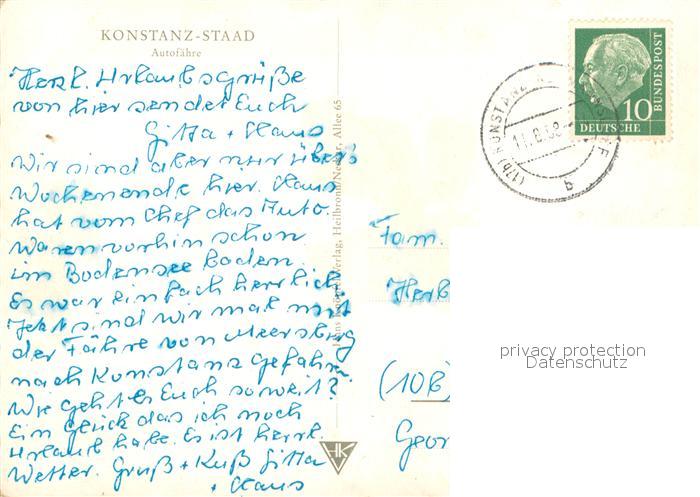 KONSTANZ-STAAD
Autofähre
Herzl. Urlaubsgrüße
von hier sendet Euch
Gitta + Claus
Wir sind aber nur übers
Wochenende hier. Claus
hat vom Chef das Auto.
Waren vorhin schon
im Bodensee baden.
Es war einfach herrlich
Jetzt sind wir mal mit
der Fähre von Meersburg
nach Konstanz gefahren.
Wie geht es Euch soweit?
Ein Glück das ich noch
Urlaub habe. Es ist herrl.
Wetter. Gruß + Kuß Gitta
+ Claus
Verlag, Heilbronn/Neckar, Allee 65
HK
10
DEUTSCHE
BUNDESPOST
(17b) KONSTANZ
q
Fam.
Herb
(10b)
Geor
privacy protection
Datenschutz